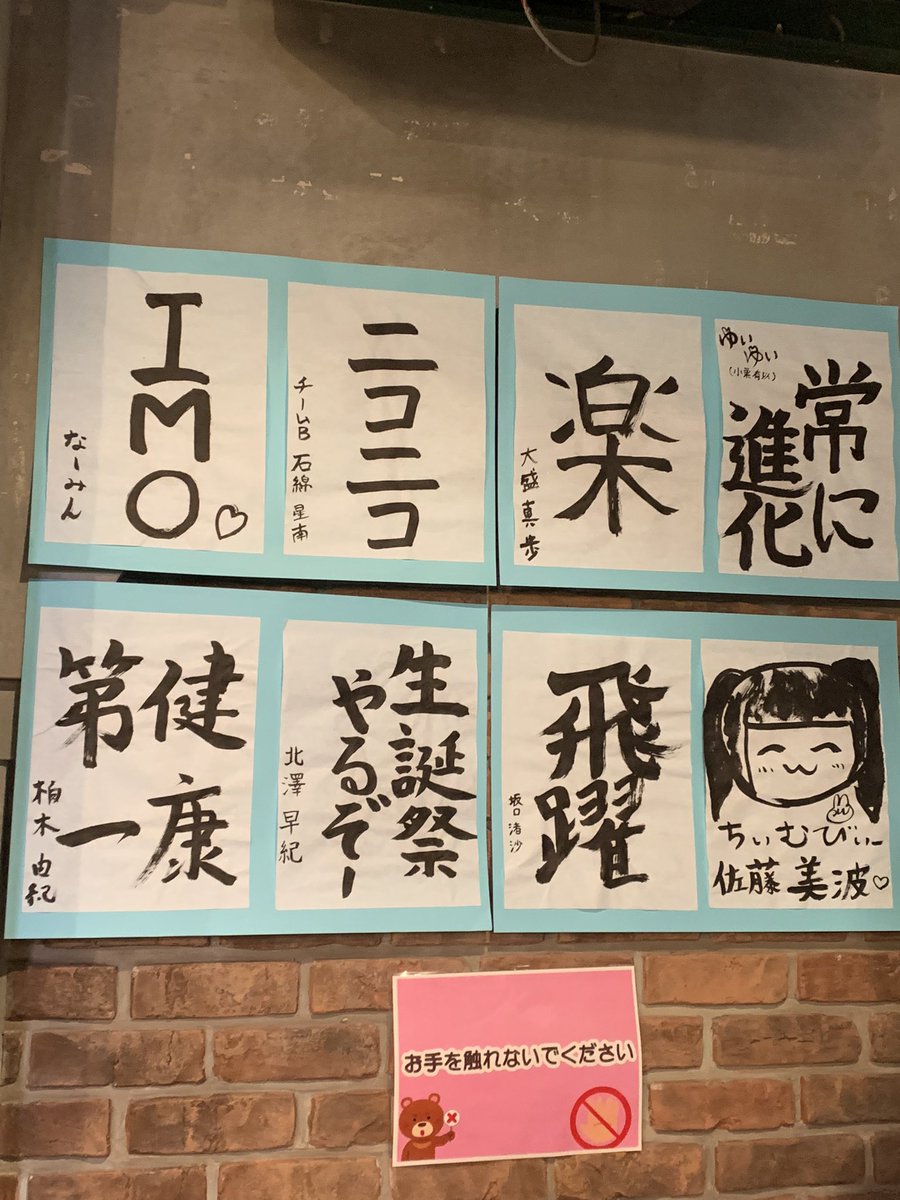 IMO
なーみん
ニコニコ
チームB 石綿星南
楽
大盛真歩
常に
進化
ゆいゆい
(小栗有以)
健康
第一
柏木由紀
生誕祭
やるぞー
北澤早紀
飛躍
坂口渚沙
ちぃむびぃー
佐藤美波
お手を触れないでください